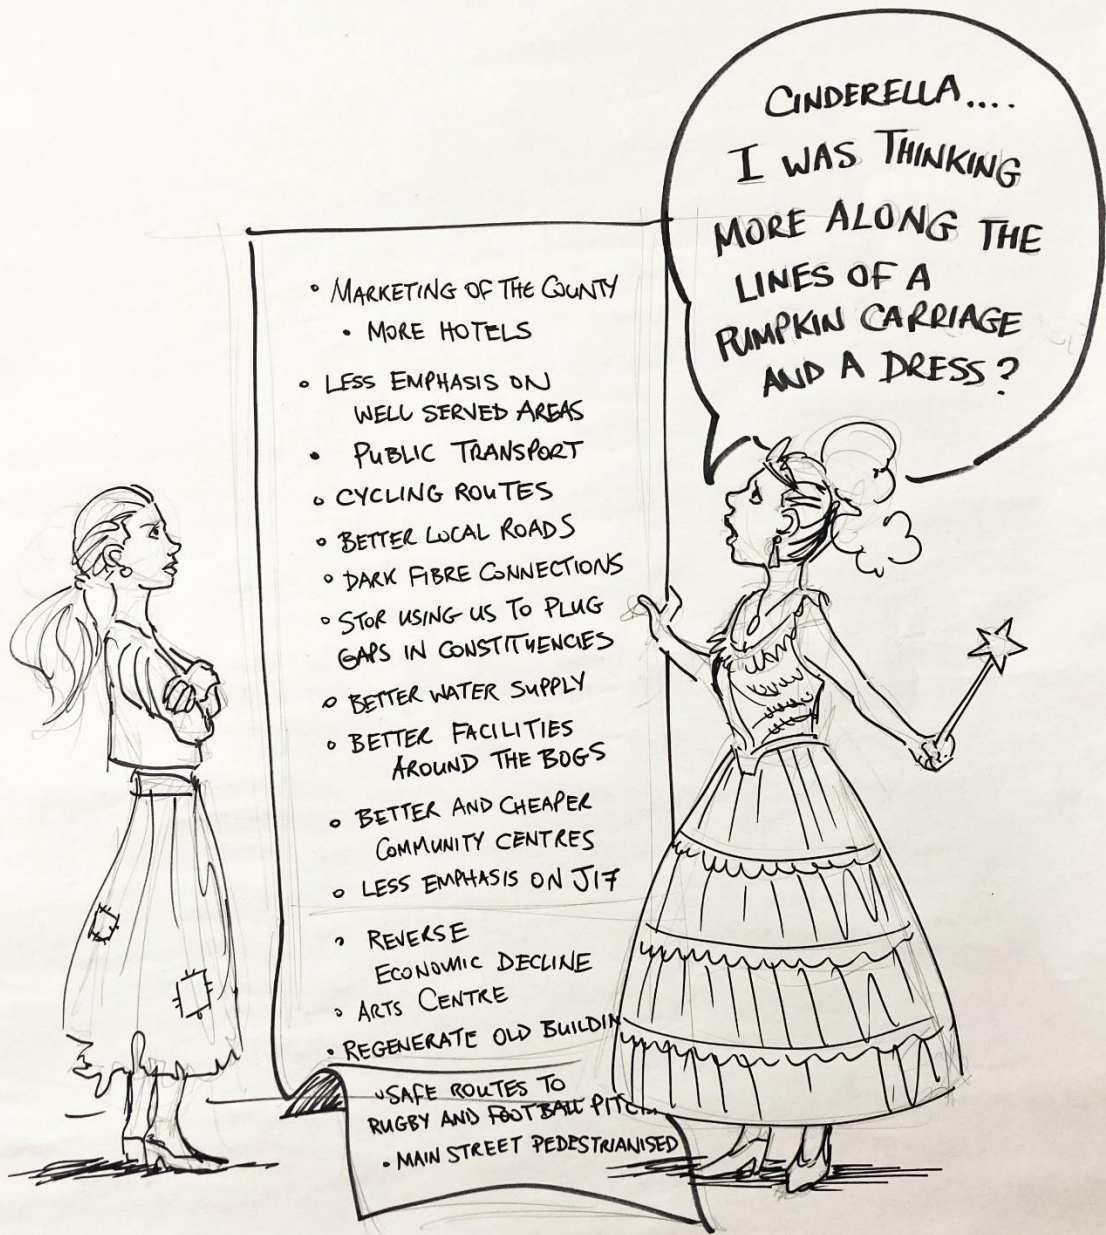 CINDERELLA....
I WAS THINKING
MORE ALONG THE
LINES OF A
PUMPKIN CARRIAGE
AND A DRESS?
• MARKETING OF THE COUNTY
• MORE HOTELS
• LESS EMPHASIS ON
WELL SERVED AREAS
• PUBLIC TRANSPORT
• CYCLING ROUTES
• BETTER LOCAL ROADS
• DARK FIBRE CONNECTIONS
• STOP USING US TO PLUG
GAPS IN CONSTITUENCIES
• BETTER WATER SUPPLY
• BETTER FACILITIES
AROUND THE BOGS
• BETTER AND CHEAPER
COMMUNITY CENTRES
• LESS EMPHASIS ON J17
• REVERSE
ECONOMIC DECLINE
• ARTS CENTRE
• REGENERATE OLD BUILDIN
• SAFE ROUTES TO
RUGBY AND FOOTBALL PITC...
• MAIN STREET PEDESTRIANISED